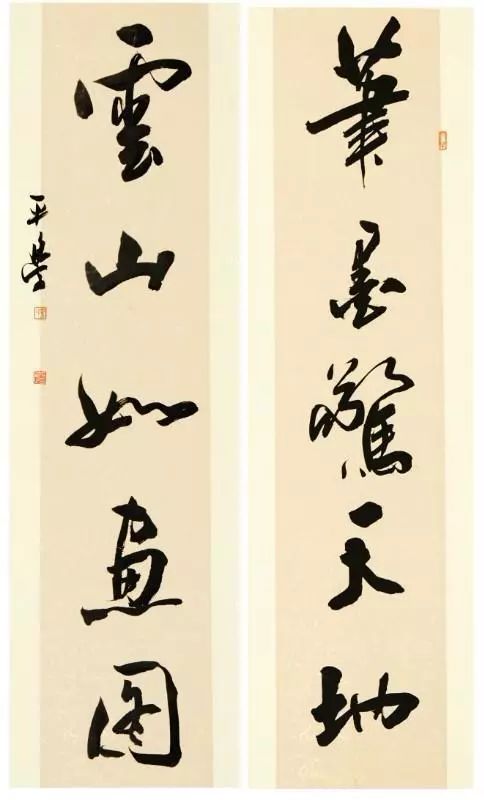 筆墨驚天地
雲山如畫圖
平